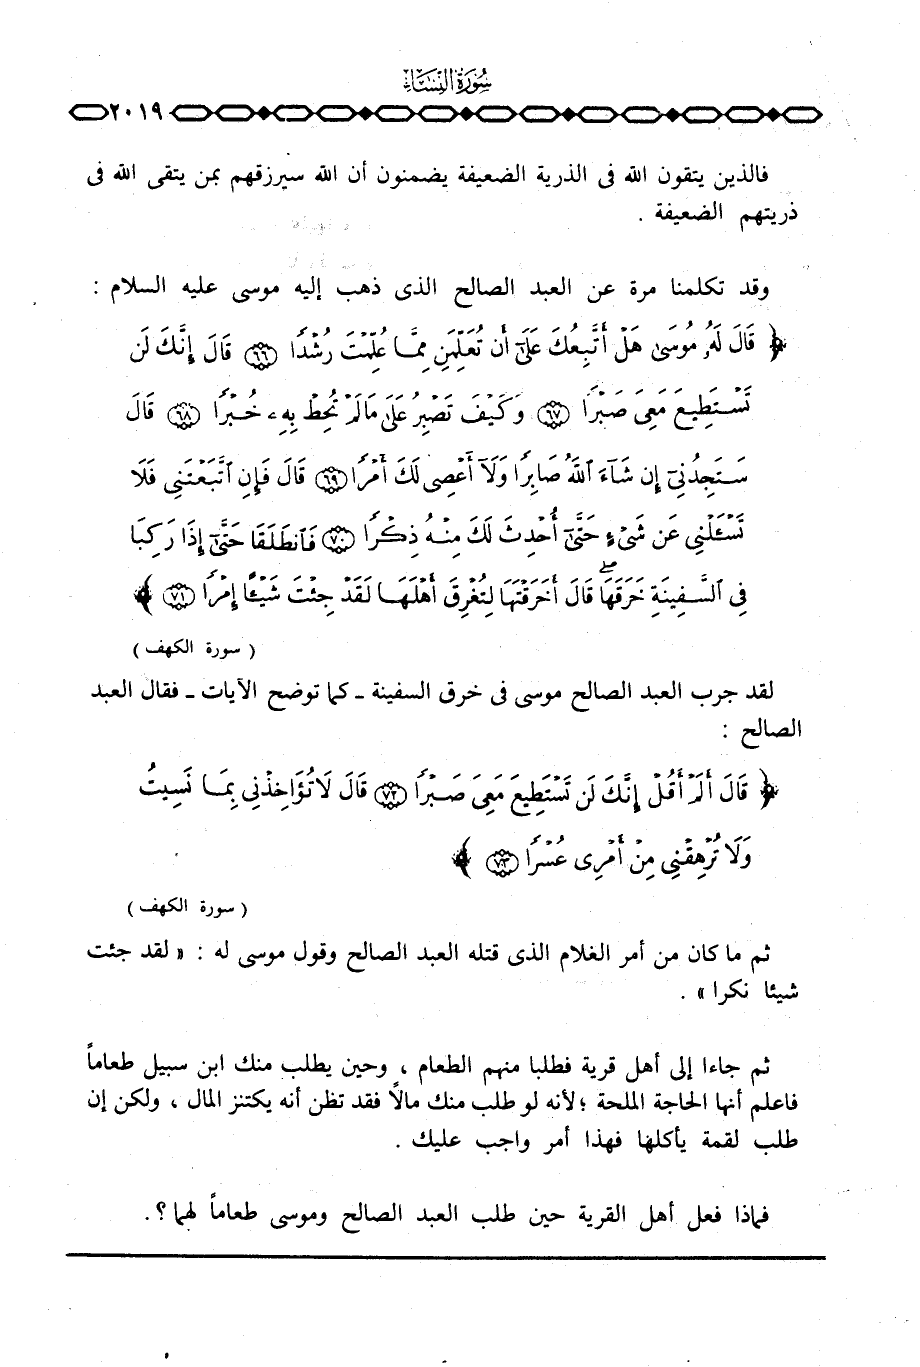 سُورَةُ النِّسَاءِ
٢٠١٩
فالذين يتقون الله فى الذرية الضعيفة يضمنون أن الله سيرزقهم بمن يتقى الله فى
ذريتهم الضعيفة .
وقد تكلمنا مرة عن العبد الصالح الذى ذهب إليه موسى عليه السلام :
﴿ قَالَ لَهُۥ مُوسَىٰ هَلْ أَتَّبِعُكَ عَلَىٰٓ أَن تُعَلِّمَنِ مِمَّا عُلِّمْتَ رُشْدًا ﴿٦٦﴾ قَالَ إِنَّكَ لَن
تَسْتَطِيعَ مَعِىَ صَبْرًا ﴿٦٧﴾ وَكَيْفَ تَصْبِرُ عَلَىٰ مَا لَمْ تُحِطْ بِهِۦ خُبْرًا ﴿٦٨﴾ قَالَ
سَتَجِدُنِىٓ إِن شَآءَ ٱللَّهُ صَابِرًا وَلَآ أَعْصِى لَكَ أَمْرًا ﴿٦٩﴾ قَالَ فَإِنِ ٱتَّبَعْتَنِى فَلَا
تَسْـَٔلْنِى عَن شَىْءٍ حَتَّىٰٓ أُحْدِثَ لَكَ مِنْهُ ذِكْرًا ﴿٧٠﴾ فَٱنطَلَقَا حَتَّىٰٓ إِذَا رَكِبَا
فِى ٱلسَّفِينَةِ خَرَقَهَا ۖ قَالَ أَخَرَقْتَهَا لِتُغْرِقَ أَهْلَهَا لَقَدْ جِئْتَ شَيْـًٔا إِمْرًا ﴿٧١﴾ ﴾
( سورة الكهف )
لقد جرب العبد الصالح موسى فى خرق السفينة ـ كما توضح الآيات ـ فقال العبد
الصالح :
﴿ قَالَ أَلَمْ أَقُلْ إِنَّكَ لَن تَسْتَطِيعَ مَعِىَ صَبْرًا ﴿٧٢﴾ قَالَ لَا تُؤَاخِذْنِى بِمَا نَسِيتُ
وَلَا تُرْهِقْنِى مِنْ أَمْرِى عُسْرًا ﴿٧٣﴾ ﴾
( سورة الكهف )
ثم ما كان من أمر الغلام الذى قتله العبد الصالح وقول موسى له : « لقد جئت
شيئا نكرا » .
ثم جاءا إلى أهل قرية فطلبا منهم الطعام ، وحين يطلب منك ابن سبيل طعاماً
فاعلم أنها الحاجة الملحة ؛ لأنه لو طلب منك مالاً فقد تظن أنه يكتنز المال ، ولكن إن
طلب لقمة يأكلها فهذا أمر واجب عليك .
فماذا فعل أهل القرية حين طلب العبد الصالح وموسى طعاماً لهما ؟ .